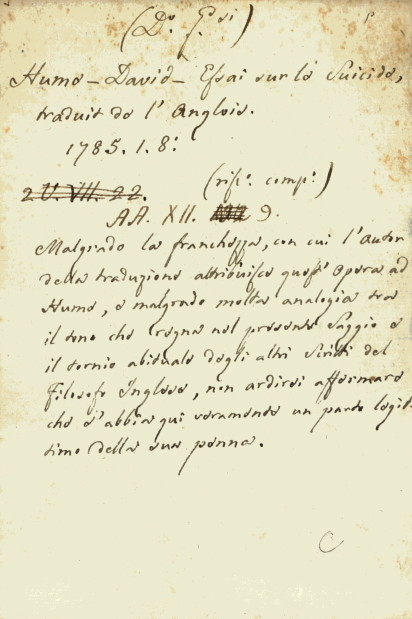 Hume – David – Essai sur le Suicide,
traduit de l' Anglois.
1785. 1. 8.°
2 U. VII. 22. (rist.° comp.°)
AA. XII. 9.
Malgrado la franchezza, con cui l'Autor
della traduzione attribuisce quest' opera ad
Hume, e malgrado molta analogia tra
il tono che regna nel presente Saggio e
il tornio abituale degli altri Scritti del
Filosofo Inglese, non ardirei affermare
che s'abbia qui veramente un parto legit-
timo della sua penna.
C